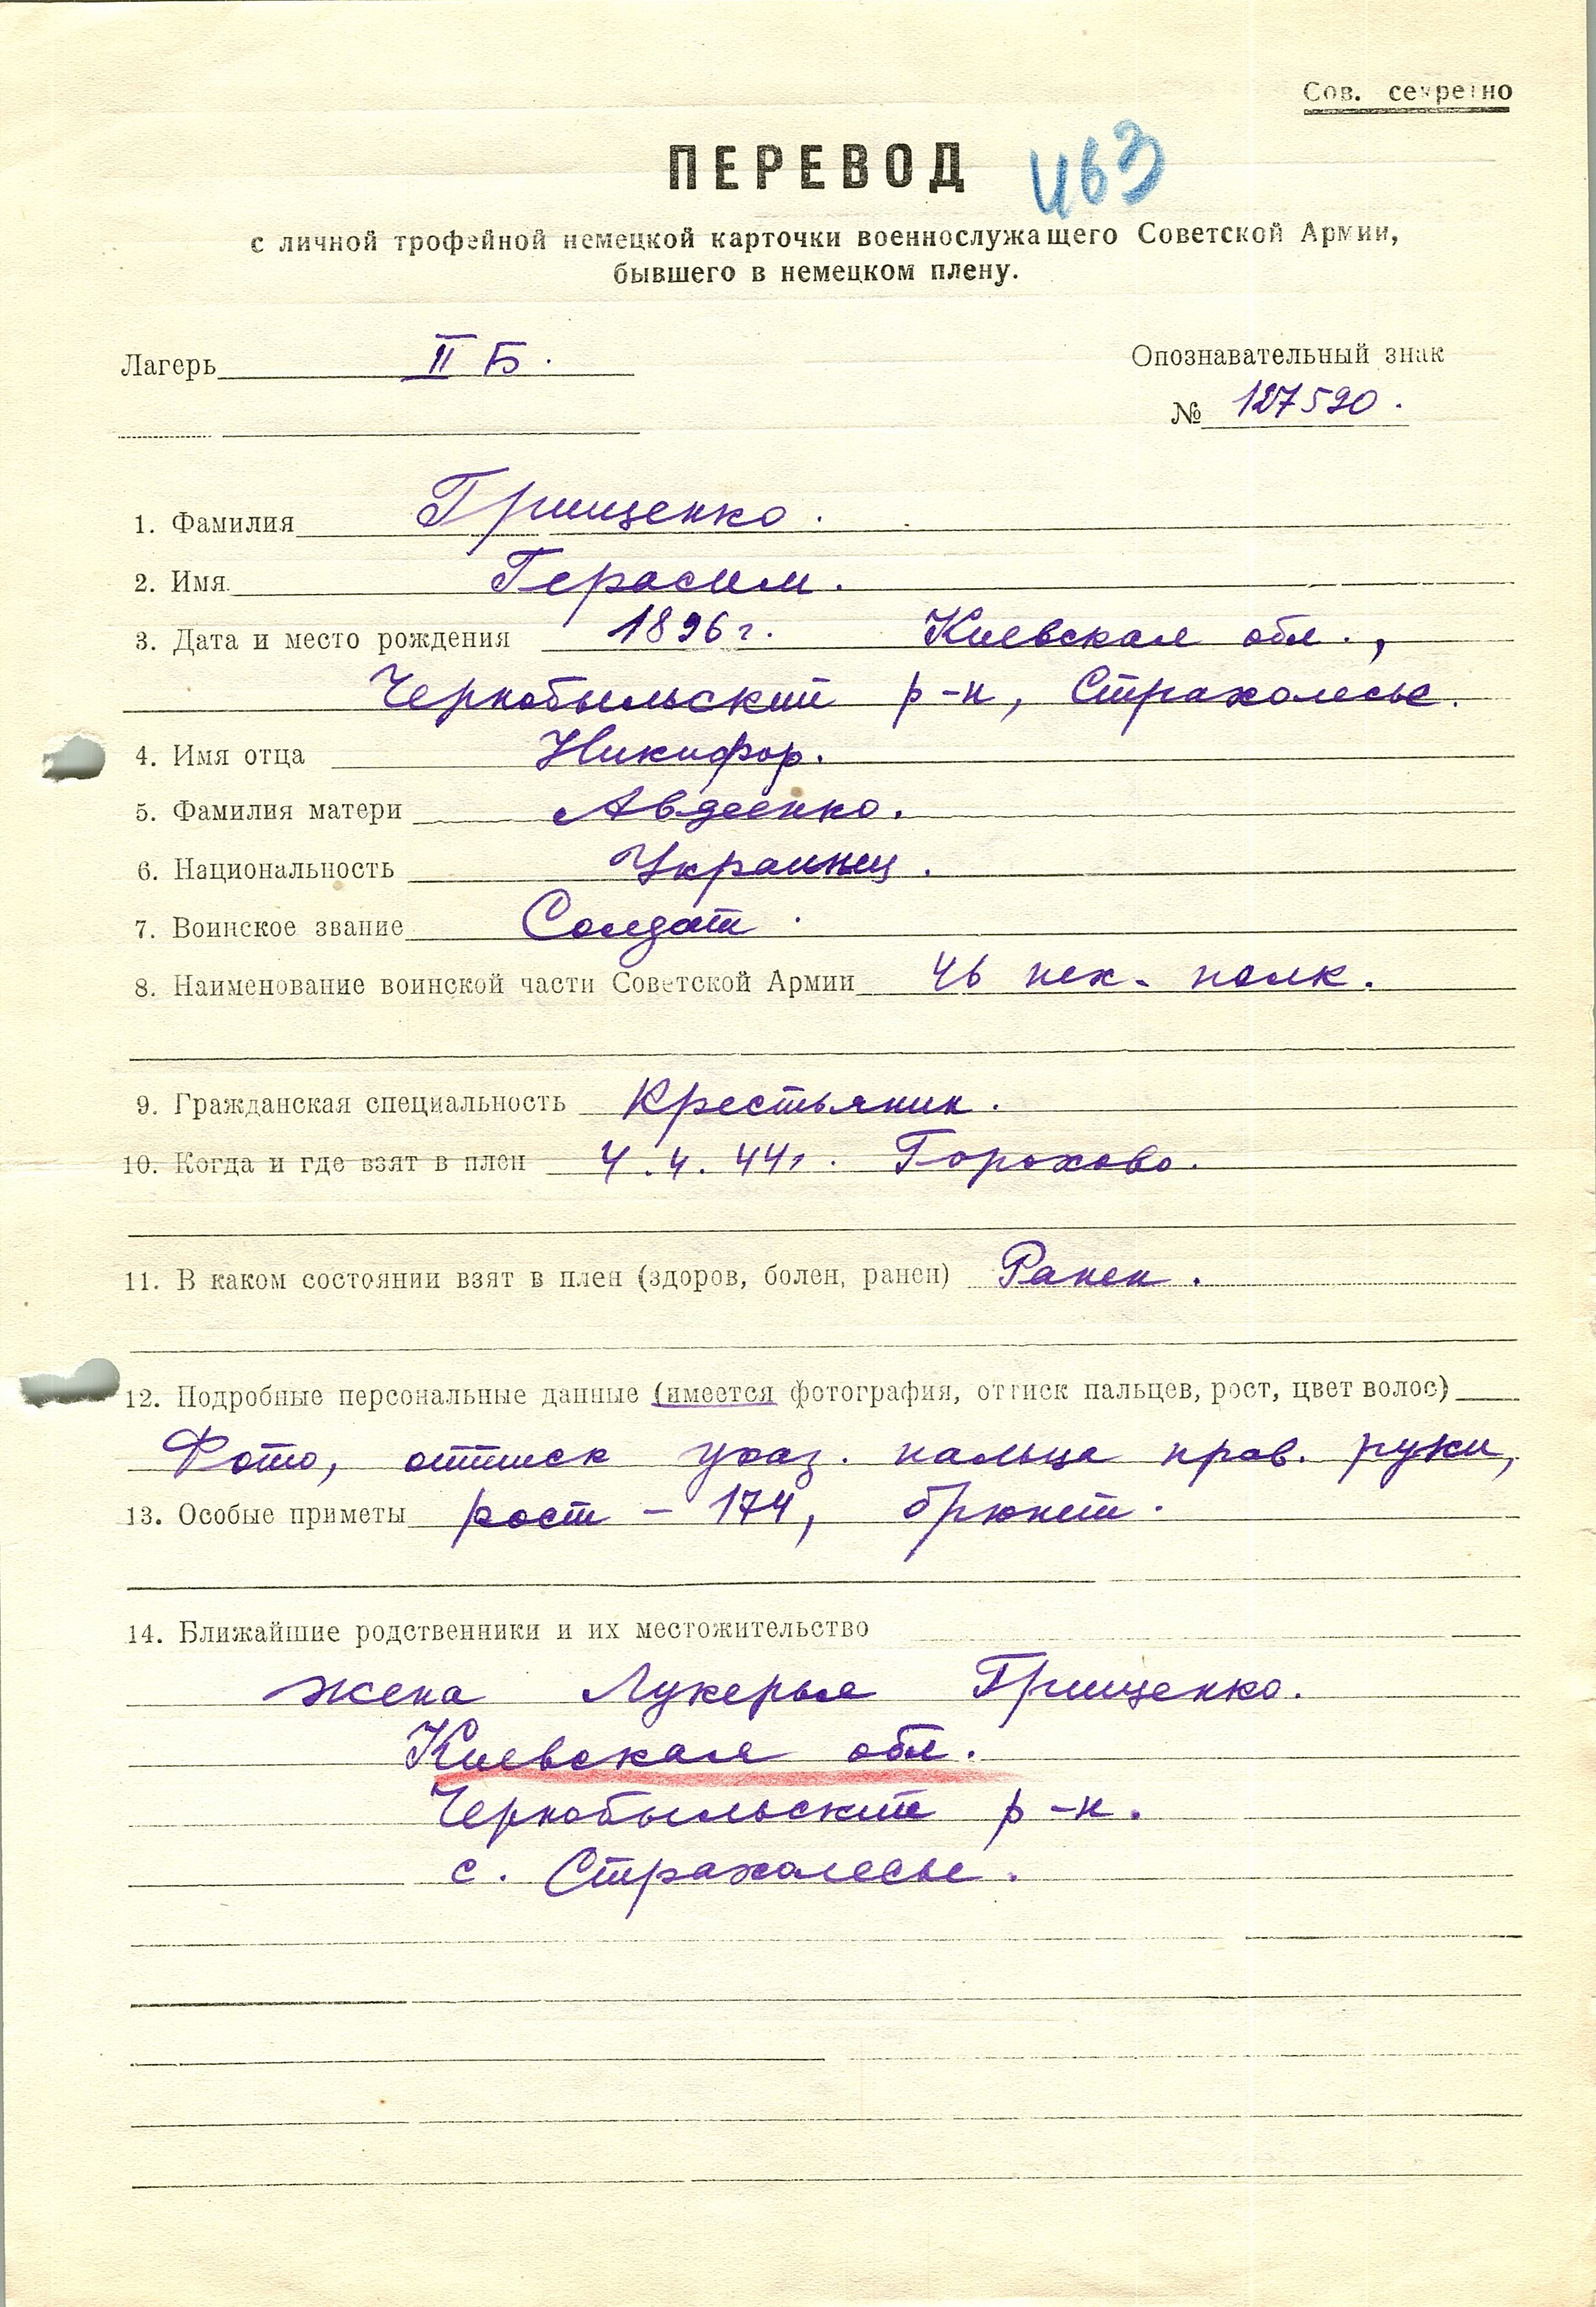 Сов. секретно
ПЕРЕВОД
463
с личной трофейной немецкой карточки военнослужащего Советской Армии,
бывшего в немецком плену.
Лагерь II Б.
Опознавательный знак
№ 127520.
1. Фамилия Грищенко.
2. Имя Герасим.
3. Дата и место рождения 1896 г. Киевская обл.,
Чернобыльский р-н, Страхолесье.
4. Имя отца Никифор.
5. Фамилия матери Авдеенко.
6. Национальность Украинец.
7. Воинское звание Солдат.
8. Наименование воинской части Советской Армии 46 пех. полк.
9. Гражданская специальность Крестьянин.
10. Когда и где взят в плен 4.4.44г. Горохово.
11. В каком состоянии взят в плен (здоров, болен, ранен) Ранен.
12. Подробные персональные данные (имеется фотография, оттиск пальцев, рост, цвет волос)
Фото, оттиск указ. пальца прав. руки,
13. Особые приметы рост – 174, брюнет.
14. Ближайшие родственники и их местожительство
жена Лукерья Грищенко.
Киевская обл.
Чернобыльский р-н.
с. Страхолесье.